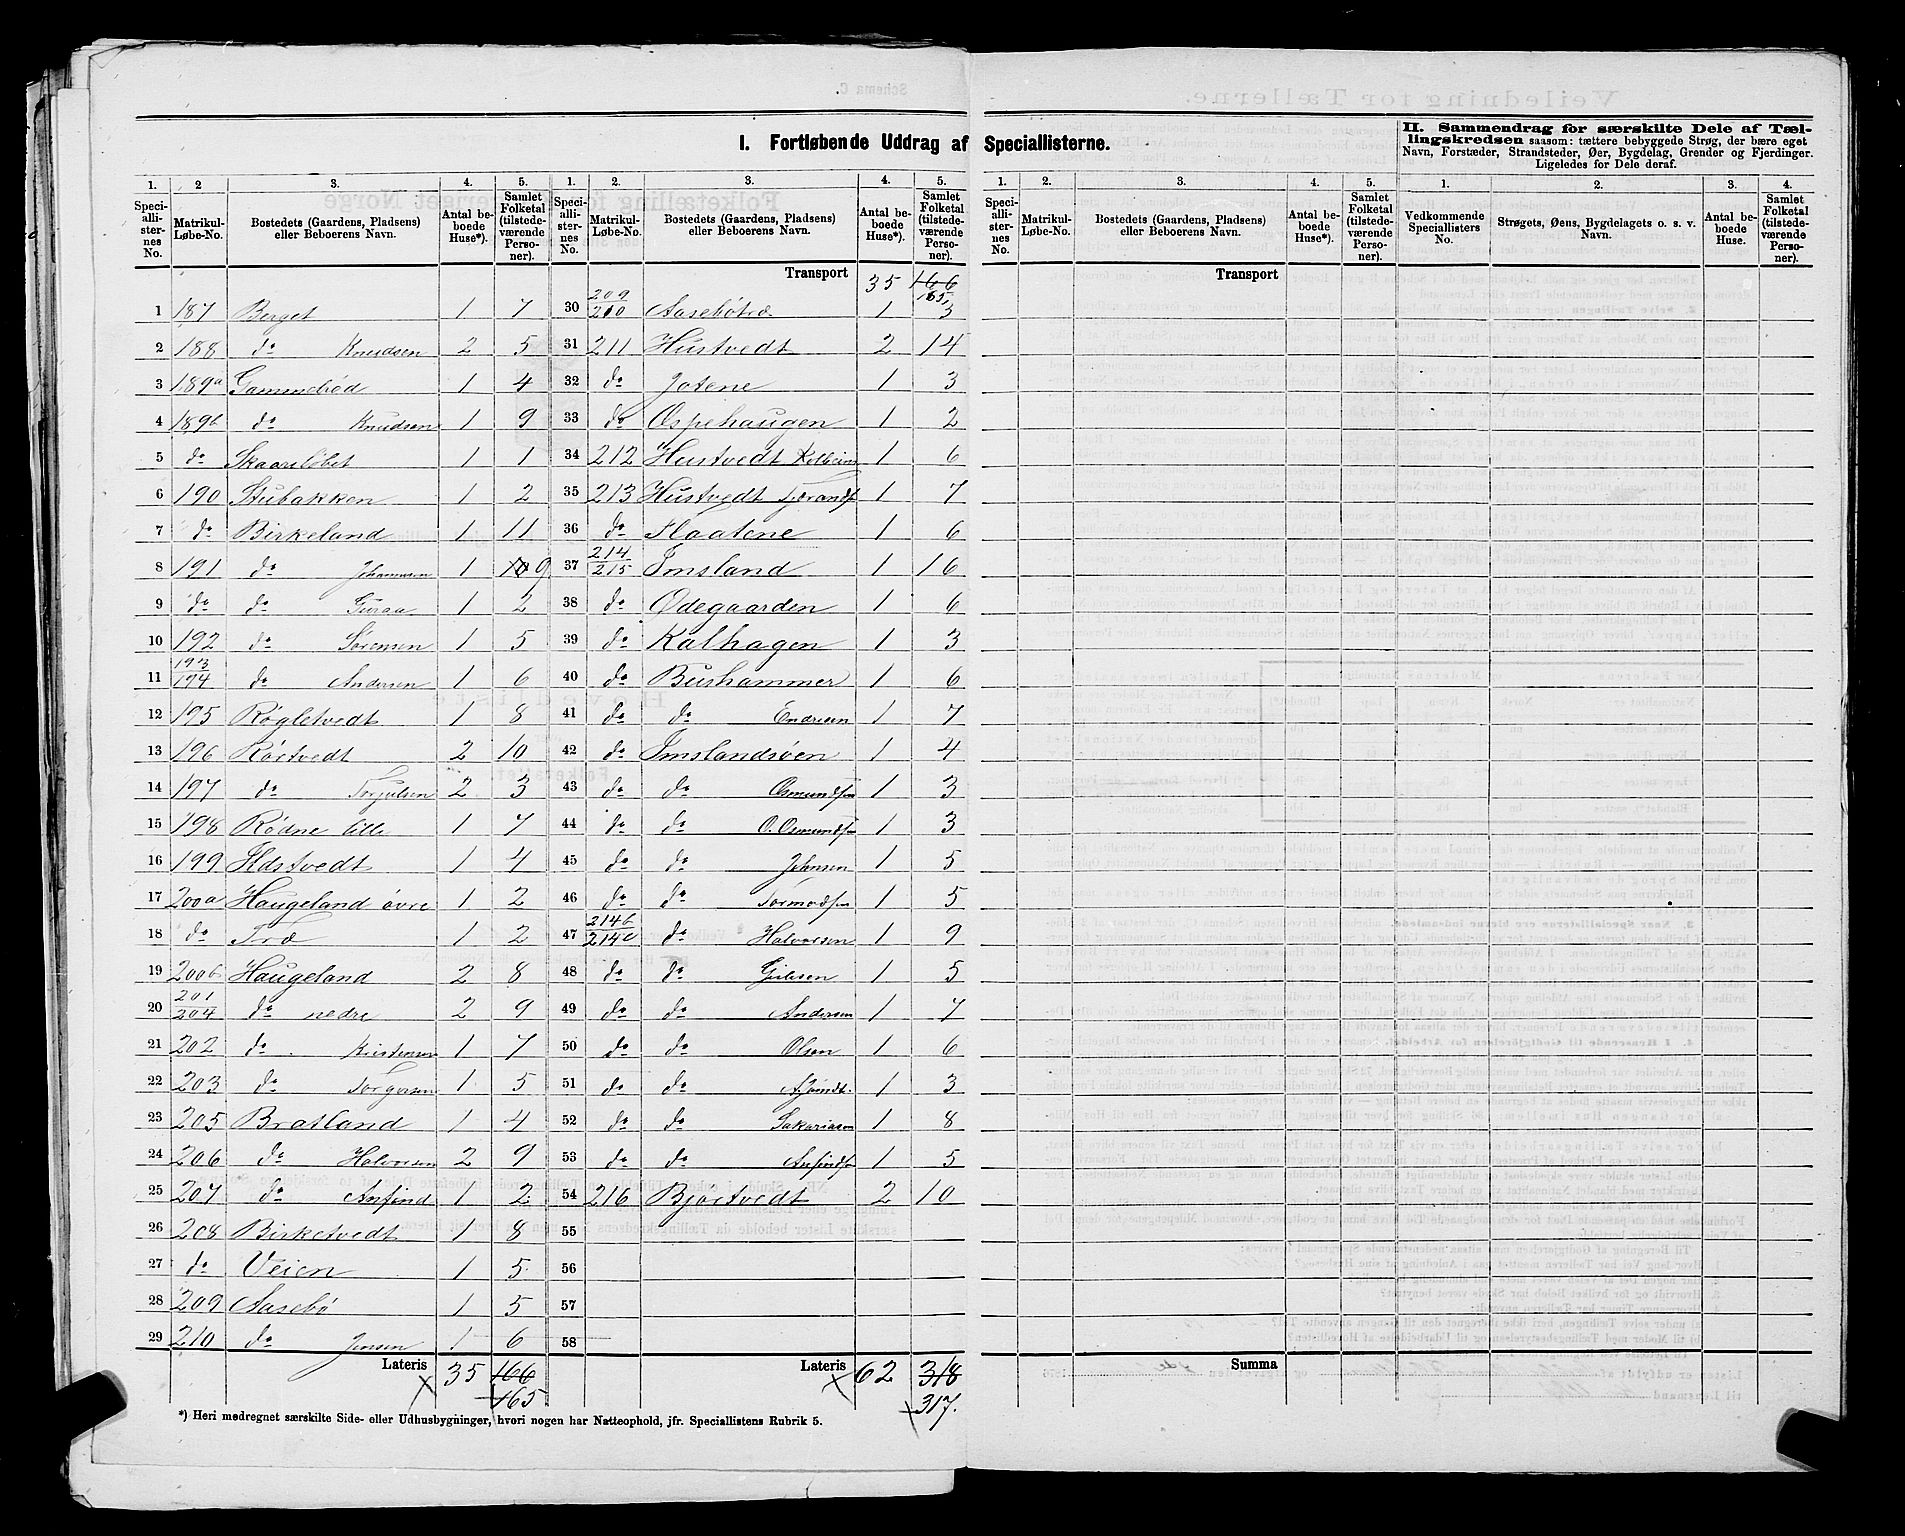 I. Fortløbende Uddrag af Speciallisterne.
II. Sammendrag for særskilte Dele af Tællingskredsen saasom: tættere bebyggede Strøg, der bære eget Navn, Forstæder, Strandsteder, Øer, Bygdelag, Grender og Fjerdinger. Ligeledes for Dele deraf.
1. 2 3. 4. 5. 1. 2. 3. 4. 5. 1. 2. 3. 4. 5. 1. 2. 3. 4.
Speciallisternes No. Matrikul-Løbe-No. Bostedets (Gaardens, Pladsens) eller Beboerens Navn. Antal beboede Huse*). Samlet Folketal (tilstedeværende Personer).
Speciallisternes No. Matrikul-Løbe-No. Bostedets (Gaardens, Pladsens) eller Beboerens Navn. Antal beboede Huse*). Samlet Folketal (tilstedeværende Personer).
Speciallisternes No. Matrikul-Løbe-No. Bostedets (Gaardens, Pladsens) eller Beboerens Navn. Antal beboede Huse*). Samlet Folketal (tilstedeværende Personer).
Vedkommende Speciallisters No. Strøgets, Øens, Bygdelagets o. s. v. Navn. Antal beboede Huse. Samlet Folketal (tilstedeværende Personer).
1 187 Berget 1 7
2 188 do Knudsen 2 5
3 189a Gammelrød 1 4
4 189b do Knudsen 1 9
5 do Skaarsløbet 1 1
6 190 Stubakken 1 2
7 do Birkeland 1 11
8 191 do Johannesen 1 10 9
9 do do Guraa 1 2
10 192 do Sørensen 1 5
11 193/194 do Andersen 1 6
12 195 Røgletvedt 1 8
13 196 Rørtvedt 2 10
14 197 do Torjulsen 2 3
15 198 Rødne lille 1 7
16 199 Ildstvedt 1 4
17 200a Haugeland øvre 1 2
18 do Træ 1 2
19 200b Haugeland 2 8
20 201/204 do nedre 2 9
21 202 do Kristensen 1 7
22 203 do Torgersen 1 5
23 205 Bratland 1 4
24 206 do Halvorsen 2 9
25 207 do Anfind 1 2
26 208 Birketvedt 1 8
27 do Veien 1 5
28 209 Aasebø 1 5
29 210 do Jensen 1 6
Lateris 35 166 165
Transport 35 166 165
30 209/210 1 3
31 211 Hustvedt 2 14
32 do Jotene 1 3
33 do Ospehaugen 1 2
34 212 Hustvedt 1 6
35 213 Hustvedt 1 7
36 do Flaatene 1 6
37 214/215 Imsland 1 16
38 do Ødegaarden 1 6
39 do Kalhagen 1 3
40 do Bushammer 1 6
41 do do Endresen 1 7
42 do Imslandsøen 1 4
43 do do Osmundsen 1 3
44 do do O. Osmundsen 1 3
45 do do Johnsen 1 5
46 do do Tormodsen 1 5
47 214b/214c do Halvorsen 1 9
48 do do 1 5
49 do do Andersen 1 7
50 do do Olsen 1 6
51 do do 1 3
52 do do Sakariasen 1 8
53 do do Anfindsen 1 5
54 216 Bjortvedt 2 10
55
56
57
58
Lateris 62 318 317.
Transport
Summa
*) Heri medregnet særskilte Side- eller Udhusbygninger, hvori nogen har Natteophold, jfr. Speciallistens Rubrik 5.